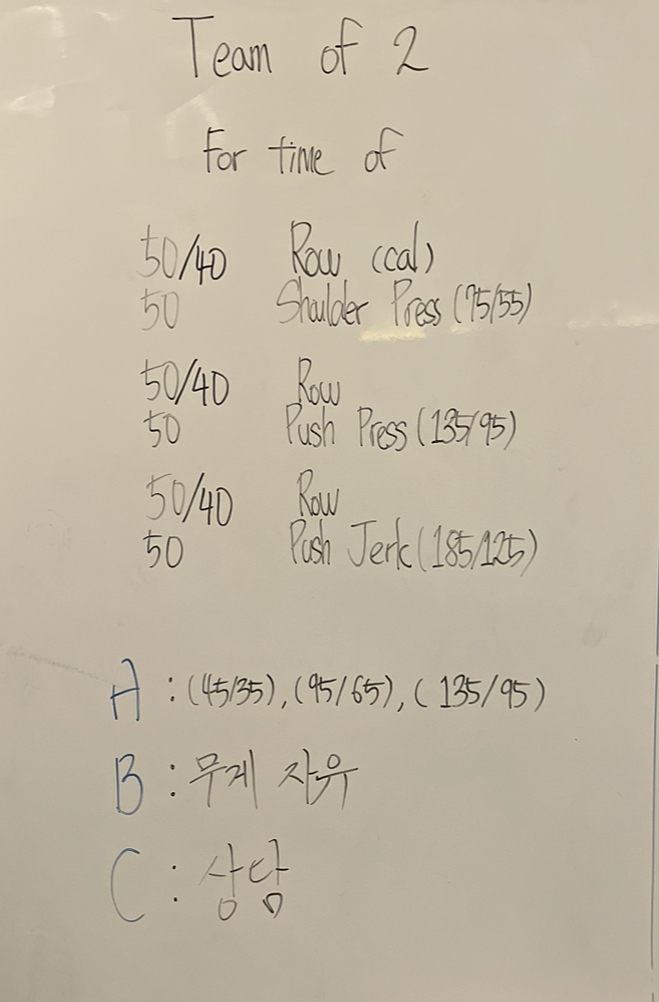 Team of 2
For time of
50/40 Row (cal)
50 Shoulder Press (75/55)
50/40 Row
50 Push Press (135/95)
50/40 Row
50 Push Jerk (185/125)
A : (45/35), (95/65), (135/95)
B : 무게 자유
C : 상담